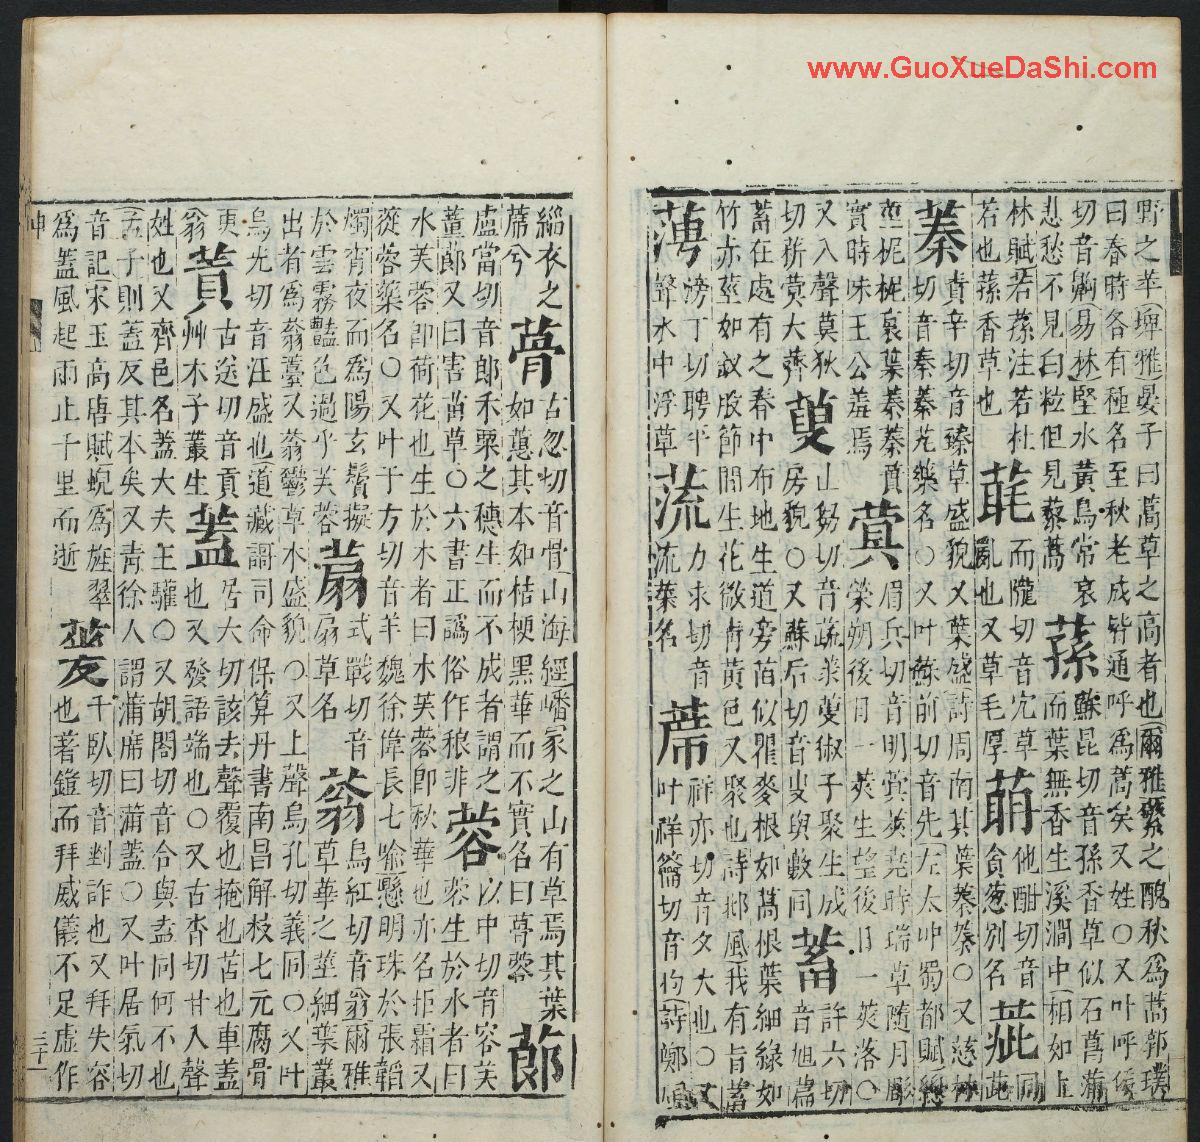 www.GuoXueDaShi.com
野之苹(埤雅)晏子曰蒿草之高者也(爾雅)蘩之醜秋爲蒿郭璞
曰春時各有種名至秋老成皆通呼爲蒿矣又姓〇又叶呼侯
切音齁(易林)堅水黃鳥常哀
悲愁不見白粒但見藜蒿
蓀
蘇昆切音孫香草似石菖蒲
而葉無香生溪澗中(相如上
林賦)若蓀注若杜
若也蓀香草也
䒜
而隴切音宂草
亂也又草毛厚
萌
他酣切音同
貪葱別名
蓁
貴辛切音臻草盛貌又葉盛(詩周南)其葉蓁蓁〇又慈林
切音秦蓁艽藥名〇又叶蘇前切音先(左太冲蜀都賦)
蓂
眉兵切音明蓂莢堯時瑞草隨月彫
榮朔後日一莢生望後日一莢落〇
實時味王公羞焉
又入聲莫狄
切菥蓂大薺
蓃
山芻切音蔬菉蓃俶子聚生成
房貌〇又蘇后切音叟與藪同
蓄
許六切
音旭蒿
蓄在處有之春中布地生道旁苗似瞿麥根如蒿根葉細綠如
竹亦莖如釵股節間生花微靑黃色又聚也(詩邶風)我有旨蓄
蓱
滂丁切聘平
聲水中浮草
蓅
力求切音
流葉名
蓆
祥亦切音夕大也〇又
叶祥籥切音杓(詩鄭風)
緇衣之
蓆兮
蓇
古忽切音骨(山海經)嶓冢之山有草焉其葉
如蕙其本如桔梗黑華而不實名曰蓇蓉
蓈
盧當切音郎禾粟之穗生而不成者謂之
董蓈又曰害苗草〇六書正譌俗作稂非
蓉
以中切音容芙
蓉生於水者曰
水芙蓉卽荷花也生於木者曰木芙蓉卽秋華也亦名拒霜又
蓯蓉藥名〇又叶于方切音羊魏徐偉長七喻(懸明珠於張韜
燭宵夜而爲陽玄鬢擬
於雲霧豔色過乎芙蓉
蓎
式戰切音
扇草名
蓊
烏紅切音翁爾雅
草華之莖細葉叢
出者爲蓊薹又蓊鬱草木盛貌〇又上聲烏孔切義同〇又叶
烏光切音汪盛也道藏謌司命保算丹書南昌解枝七元腐骨
更
蓊
蒷
古送切音貢
艸木子叢生
蓋
居大切該去聲覆也掩也苫也車蓋
也又發語端也〇又古沓切甘入聲
姓也又齊邑名蓋大夫王驩〇又胡閤切音合與盍同何不也
(孟子)則蓋反其本矣又靑徐人謂蒲席曰蒲蓋〇又叶居氣切
音記(宋玉高唐賦)蜺爲旌翠
爲蓋風起雨止千里而逝
千臥切音剉詐也又拜失容
也著鎧而拜威儀不足虛作
申
三十一